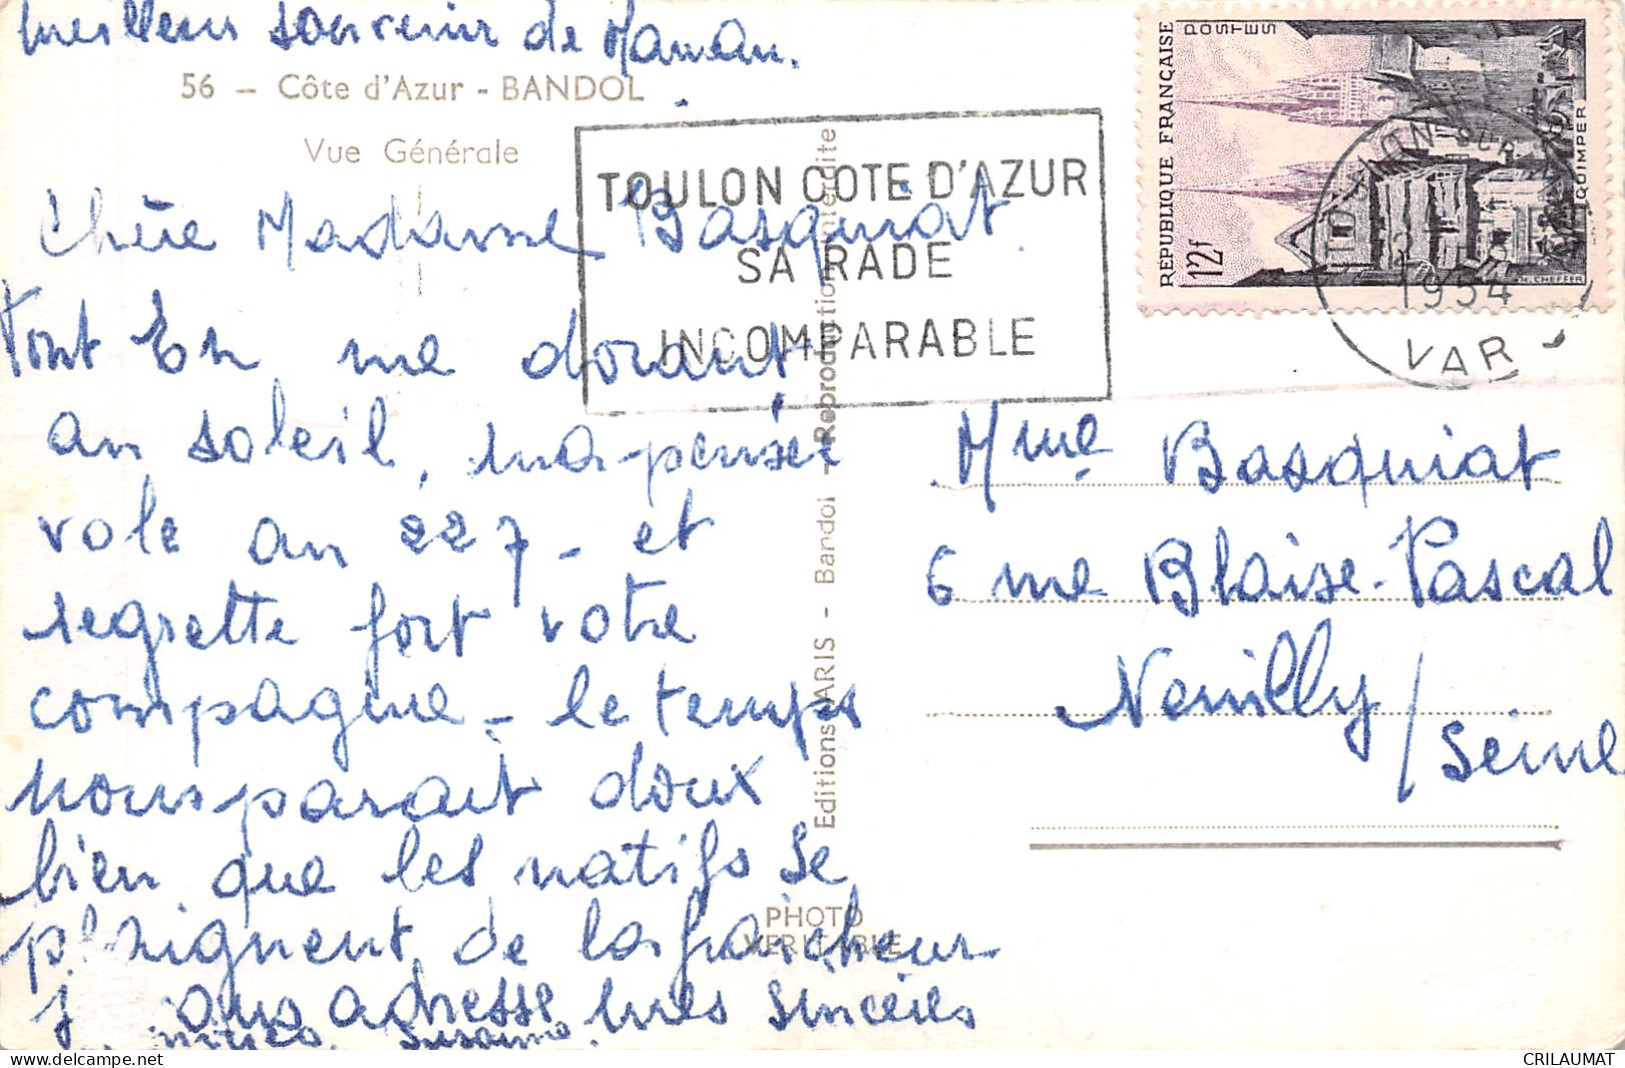 meilleur souvenir de Maman.
56 — Côte d'Azur - BANDOL
Vue Générale
Chère Madame Basquiat
Tout En me dorant
au soleil, ma pensée
vole au 227 - et
regrette fort votre
compagnie - le temps
nous parait doux
bien que les natifs se
plaignent de la fraicheur
j ous adresse mes sincères
amitiés. Suzanne
TOULON COTE D'AZUR
SA RADE
INCOMPARABLE
Editions ARIS - Bandol - Reproduction interdite
PHOTO
VERITABLE
RÉPUBLIQUE FRANÇAISE
POSTES
12f
QUIMPER
CHEFFER
SUR
1954
VAR
Mme Basquiat
6 rue Blaise-Pascal
Neuilly / Seine
CRILAUMAT
delcampe.net